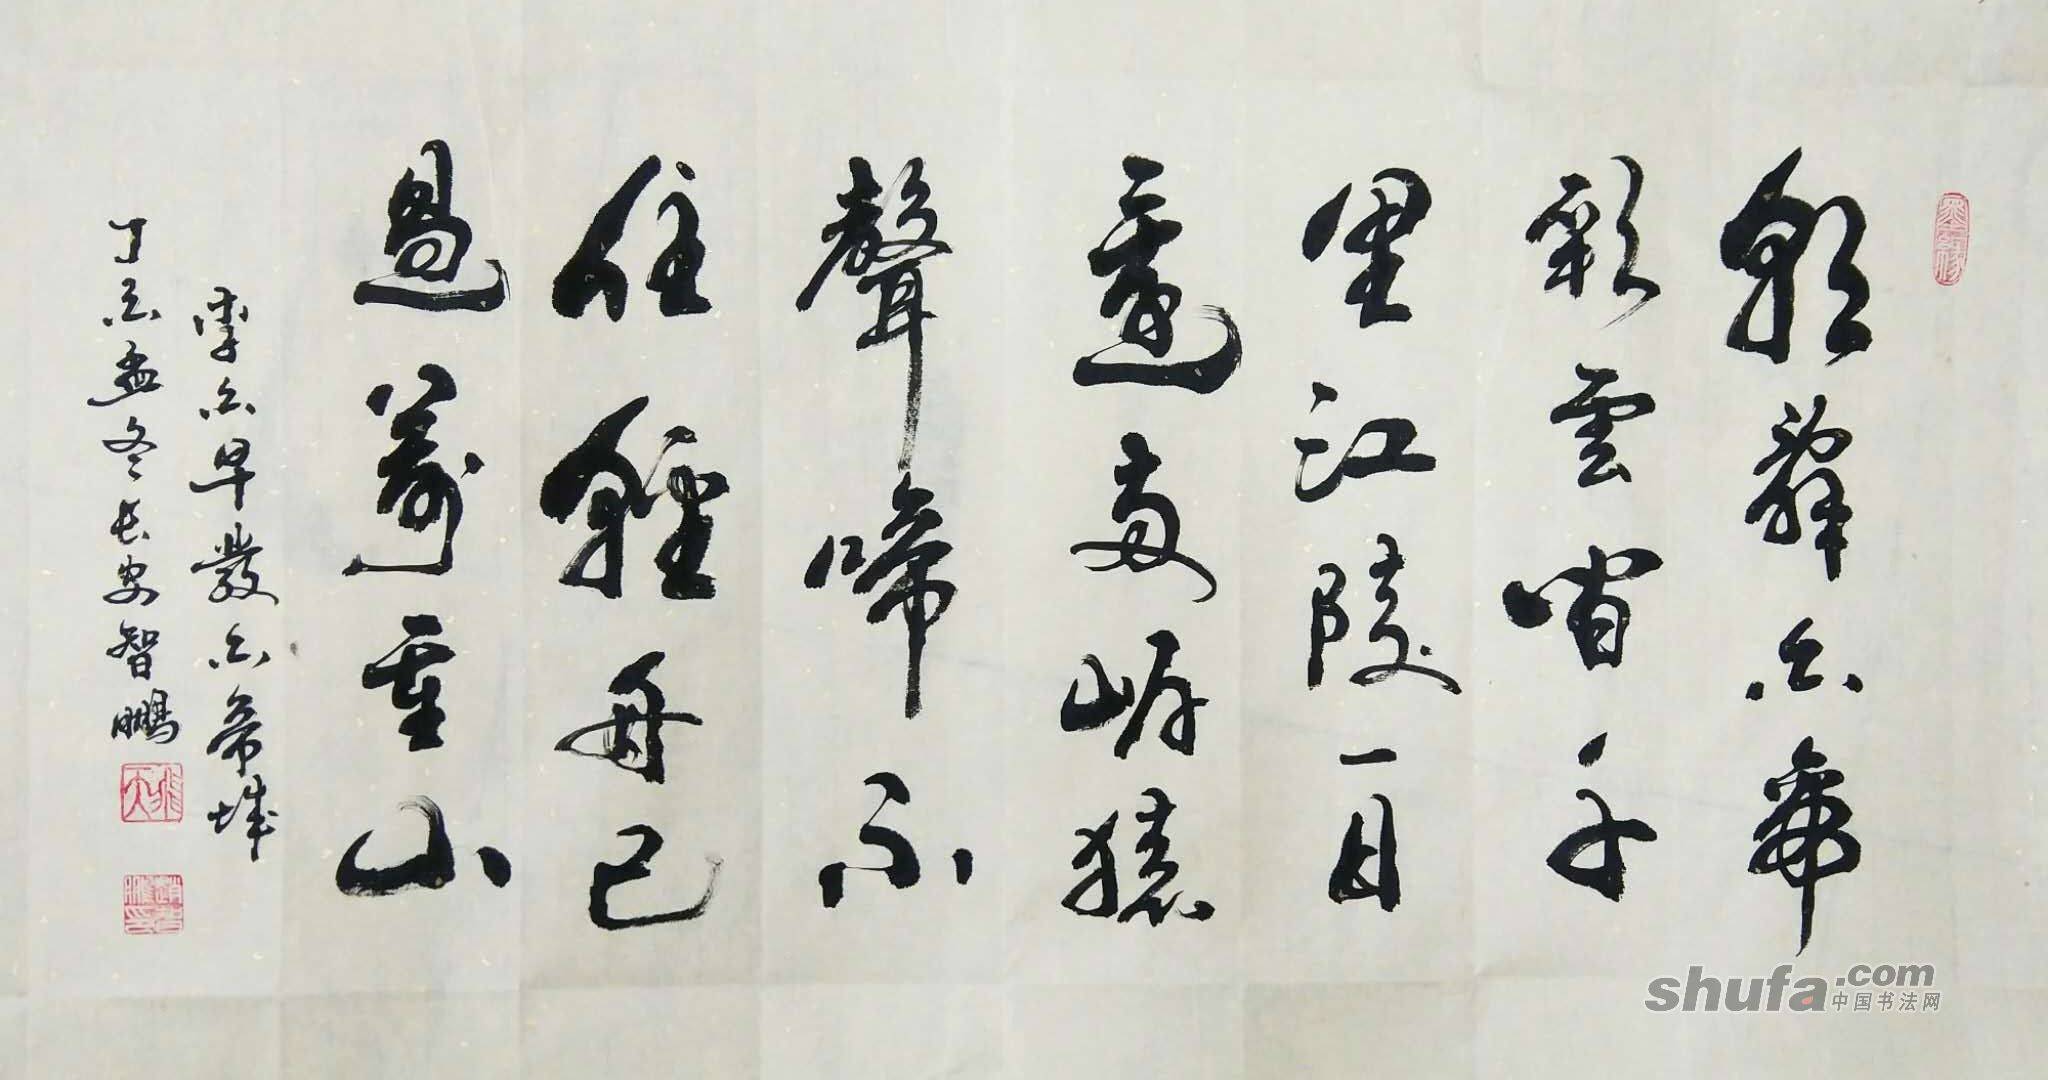 墨緣
朝辭白帝
彩雲間千
里江陵一日
還兩岸猿
聲啼不
住輕舟已
過萬重山
李白早發白帝城
丁酉孟冬長安智鵬
shufa.com
中国书法网